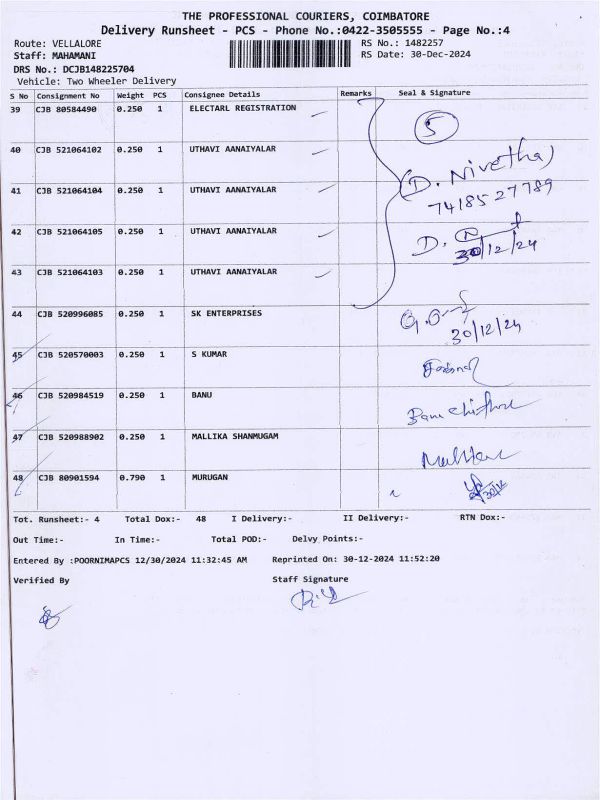 THE PROFESSIONAL COURIERS, COIMBATORE
Delivery Runsheet - PCS - Phone No.:0422-3505555 - Page No.:4
Route: VELLALORE RS No.: 1482257
Staff: MAHAMANI RS Date: 30-Dec-2024
DRS No.: DCJB148225704
Vehicle: Two Wheeler Delivery
S No Consignment No Weight PCS Consignee Details Remarks Seal & Signature
39 CJB 80584490 0.250 1 ELECTARL REGISTRATION
5
40 CJB 521064102 0.250 1 UTHAVI AANAIYALAR
(D. Nivetha)
41 CJB 521064104 0.250 1 UTHAVI AANAIYALAR
7418527789
42 CJB 521064105 0.250 1 UTHAVI AANAIYALAR
D. N
30/12/24
43 CJB 521064103 0.250 1 UTHAVI AANAIYALAR
44 CJB 520996085 0.250 1 SK ENTERPRISES
30/12/24
45 CJB 520570003 0.250 1 S KUMAR
46 CJB 520984519 0.250 1 BANU
47 CJB 520988902 0.250 1 MALLIKA SHANMUGAM
48 CJB 80901594 0.790 1 MURUGAN
Tot. Runsheet:- 4 Total Dox:- 48 I Delivery:- II Delivery:- RTN Dox:-
Out Time:- In Time:- Total POD:- Delvy Points:-
Entered By :POORNIMAPCS 12/30/2024 11:32:45 AM Reprinted On: 30-12-2024 11:52:20
Verified By Staff Signature